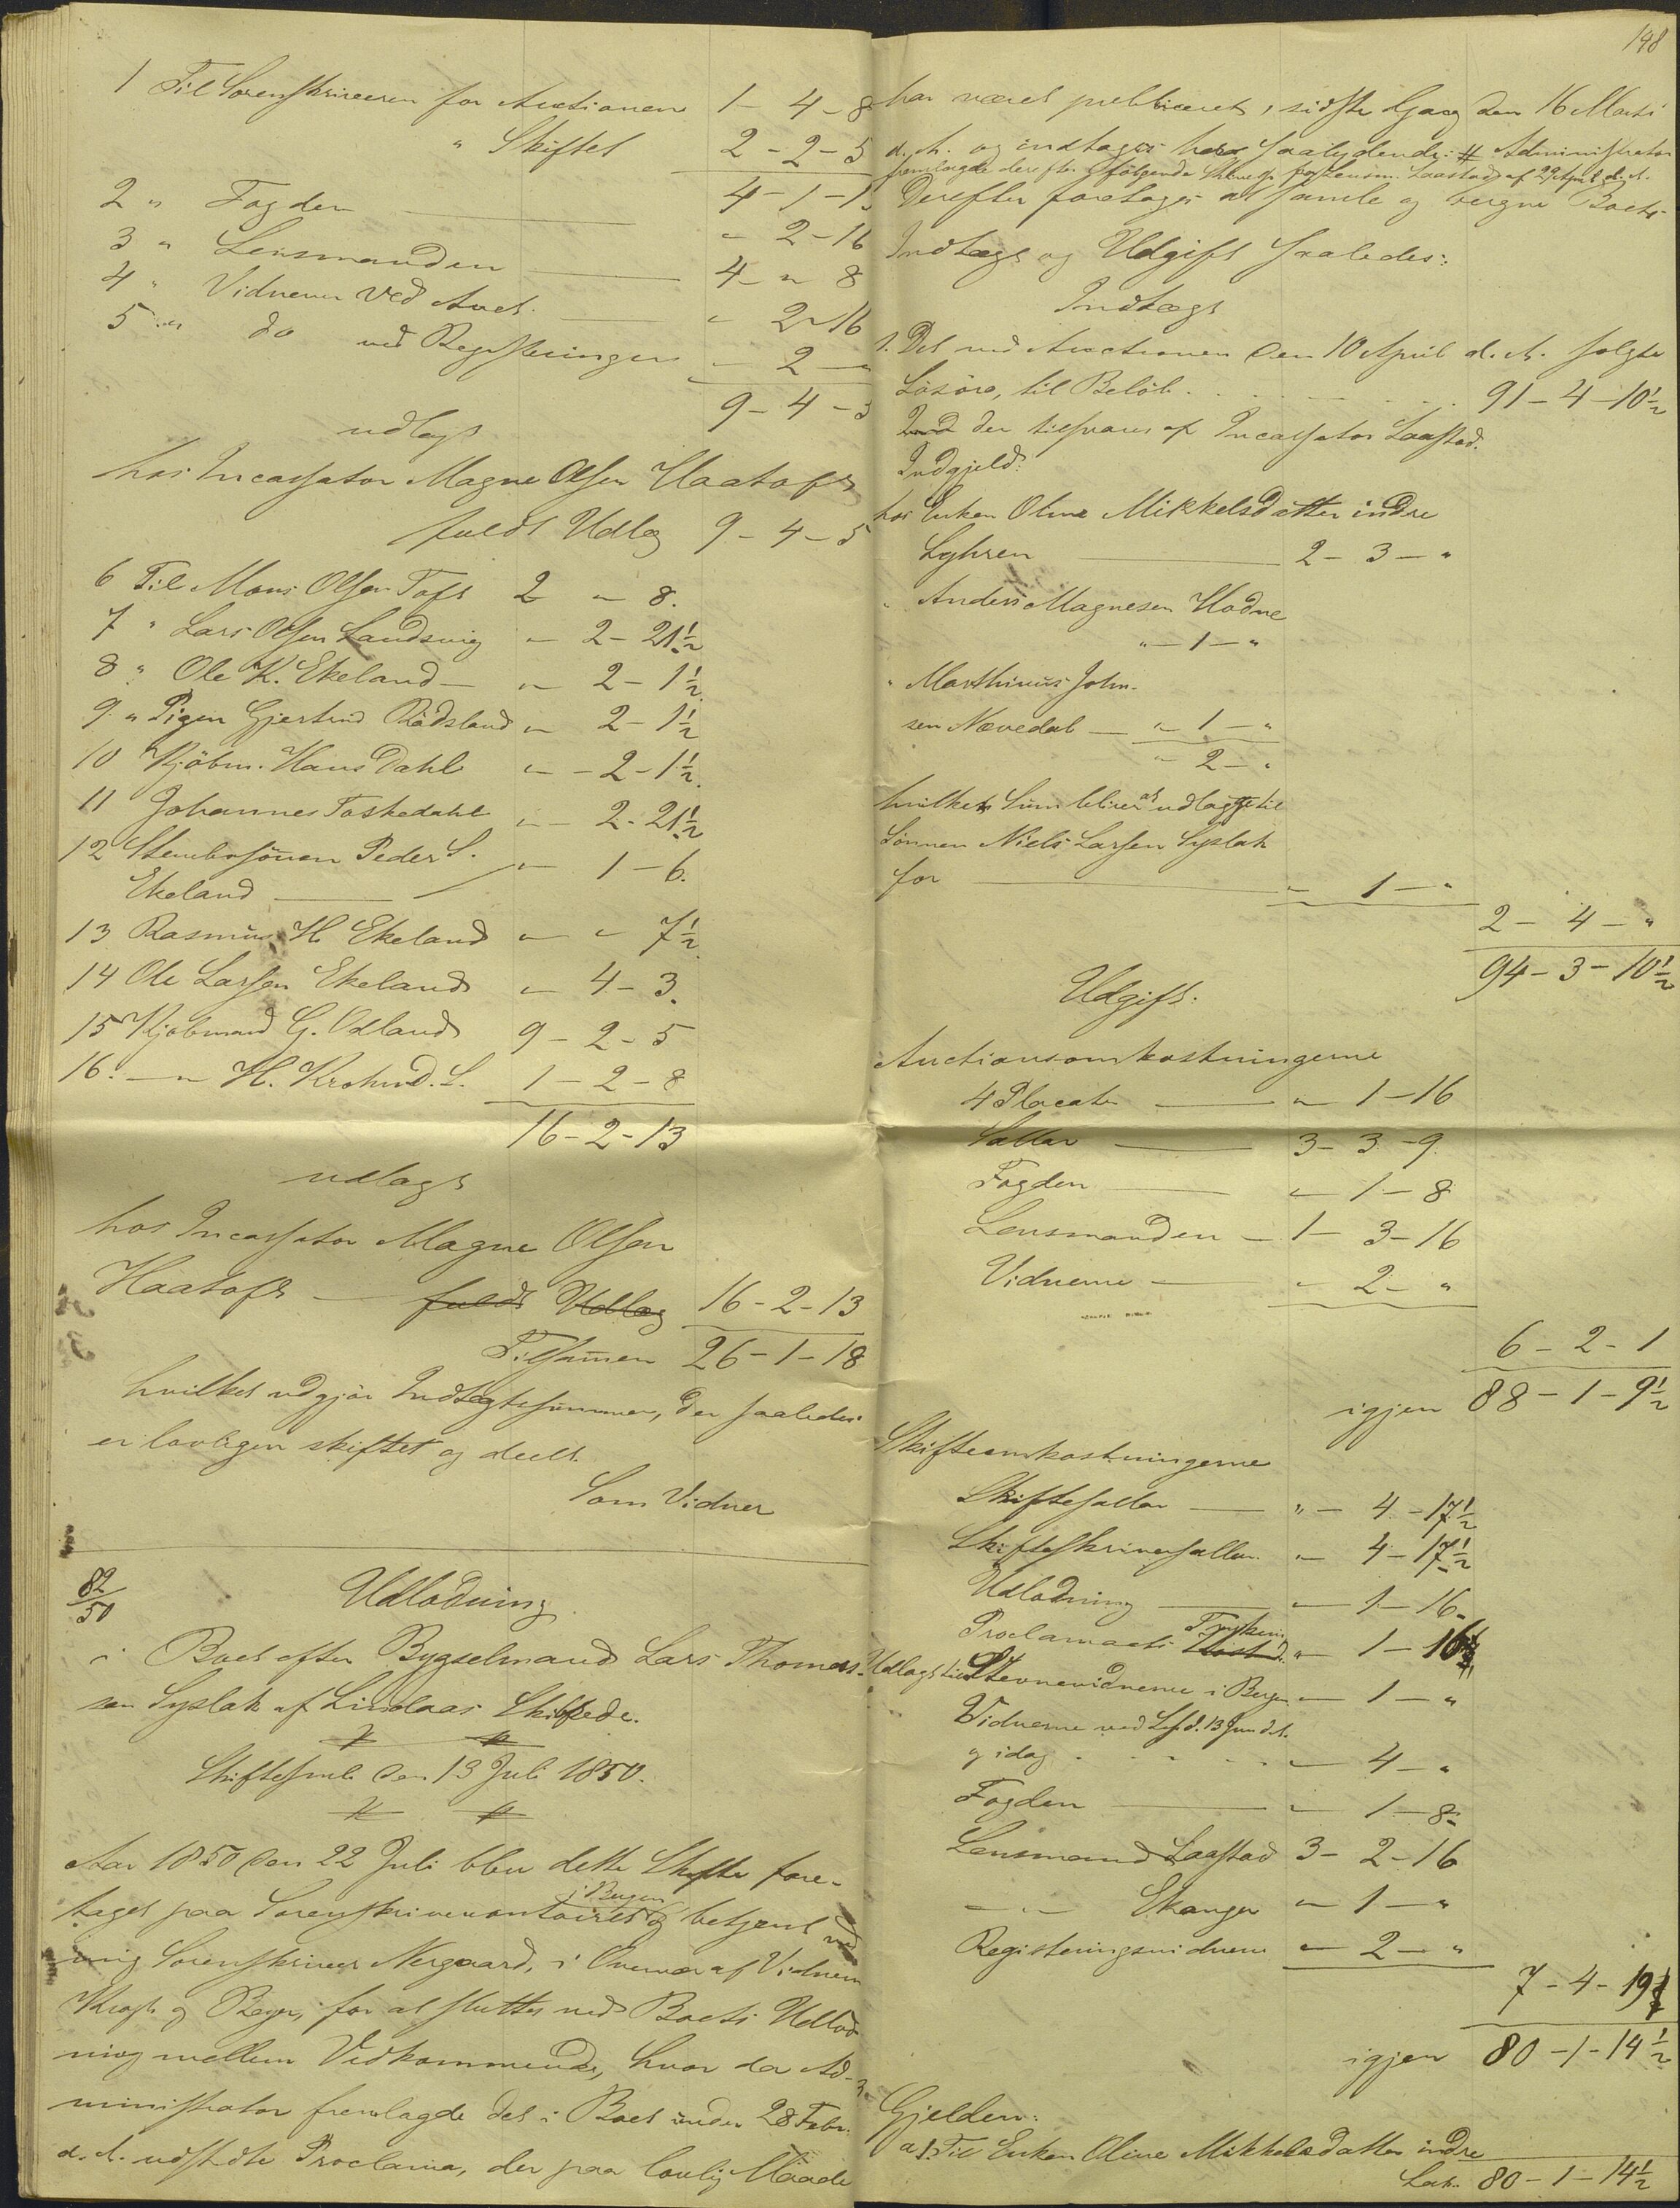 1 Til Sorenskriveren for Auctionen 1 - 4 - 8
" Skiftet 2 - 2 - 5
4 - 1 - 1
2 " Fogden " 2 - 16
3 " Lensmanden 4 " 8
4 " Vidnerne ved Auct. " 2 " 16
5 " do ved Registeringen " 2 "
9 - 4 - 5
udlagt
hos Incassator Magne Olsen Haatoft
fuldt Udlæg 9 - 4 - 5
6 Til Mons Olsen Toft 2 " 8.
7 " Lars Olsen Landsvig " 2 - 21½
8 " Ole K. Ekeland " 2 - 1½
9 " Pigen Gjertrud Rødsland " 2 - 1½
10 Kjöbm. Hans Dahl " 2 - 1½
11 Johannes Toskedahl " 2 - 21½
12 Peder S. " 1 - 6.
Ekeland
13 Rasmus H. Ekeland " " 7½
14 Ole Larsen Ekeland " 4 - 3.
15 Kjøbmand G. Odland 9 - 2 - 5
16. " H. Krohn d. S. 1 - 2 - 8
16 - 2 - 13
udlagt
hos Incassator Magne Olsen
Haatoft fuldt Udlæg 16 - 2 - 13
Tilsamen 26 - 1 - 18
hvilket udgjør Indtægtssummen, der saaledes
er lovligen skiftet og deelt.
Som Vidner
82/50 Udlodning
i Boet efter Bygselmand Lars Thomes-
sen Syslak af Lindaas Skibrede.
Skiftesml. den 13 Juli 1850.
Aar 1850 den 22 Juli blev dette Skifte fore-
i Bergen
taget paa Sorenskrivercontoiret og betjent ved
mig Sorenskriver Nergaard, i Overvær af Vidnerne
Kraft og Beyer, for at sluttes med Boets Udlod-
ning mellem Vedkommende, hvor da Ad-
ministrator fremlagde det i Boet under 28 Febr.
d. A. udstedte Proclama, der paa lovlig Maade
148
har været publiceret, sidste Gang den 16 Marts
d. A. og indtages her saalydende: # Administrator
fremlagde derefter følgende Skrivelse fra Lensm. Laastad af 29 April d. A.
Derefter foretages at samle og beregne Boets
Indtægt og Udgift saaledes:
Indtægt
1. Det ved Auctionen den 10 April d. A. solgte
Løsøre, til Beløb 91 - 4 - 10½
der tilsvares af Incassator Laastad.
Indgjeld:
hos Enken Oline Mikkelsdatter indre
Lyhren 2 - 3 - "
" Anders Magnesen Hodne
" - 1 - "
" Marthinus John-
sen Nævedal " 1 - "
" 2 - "
hvilken Sum bliver at udlægge til
Sønnen Niels Larsen Syslak
for " 1 - "
2 - 4 - "
94 - 3 - 10½
Udgift:
Auctionsomkostningerne
4 Placater " 1 - 16
Sallar 3 - 3 - 9
Fogden " 1 - 8
Lensmanden 1 - 3 - 16
Vidnerne " 2 - "
6 - 2 - 1
igjen 88 - 1 - 9½
Skifteomkostningerne
Skiftesallar " 4 - 17½
Skifteskriversallar " 4 - 17½
Udlodning " 1 - 16
Proclamaets " 1 - 16
Udlagt til Stevnevidnerne i Bergen " 1 - "
Vidnerne ved d. 13 d. A.
og idag " 4 - "
Fogden " 1 - 8
Lensmand Laastad 3 - 2 - 16
" Ekanger " 1 - "
Registeringsvidnerne " 2 - "
7 - 4 - 19
igjen 80 - 1 - 14½
Gjelden:
a 1. Til Enken Oline Mikkelsdatter indre
Lat. 80 - 1 - 14½